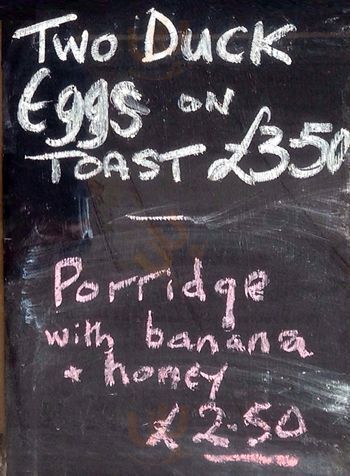 Two Duck
Eggs on
TOAST £3.50
Porridge
with banana
+ honey
£2.50